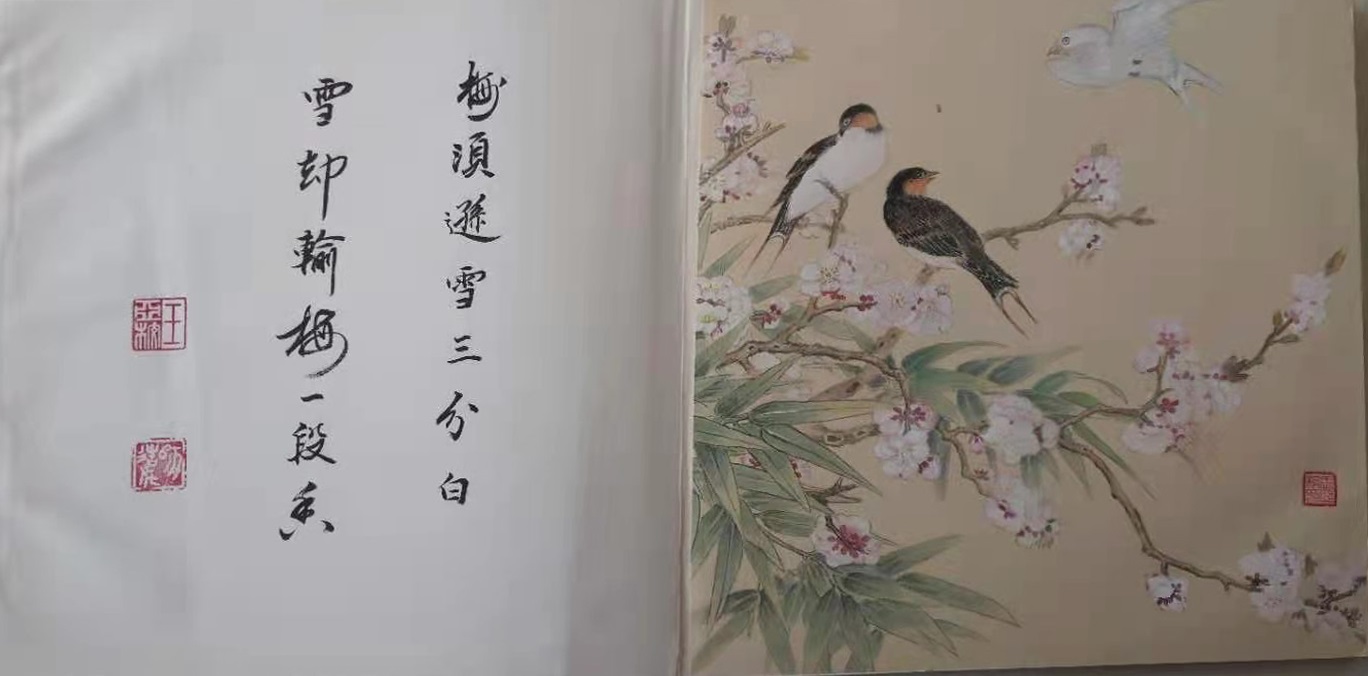 梅須遜雪三分白
雪却輸梅一段香